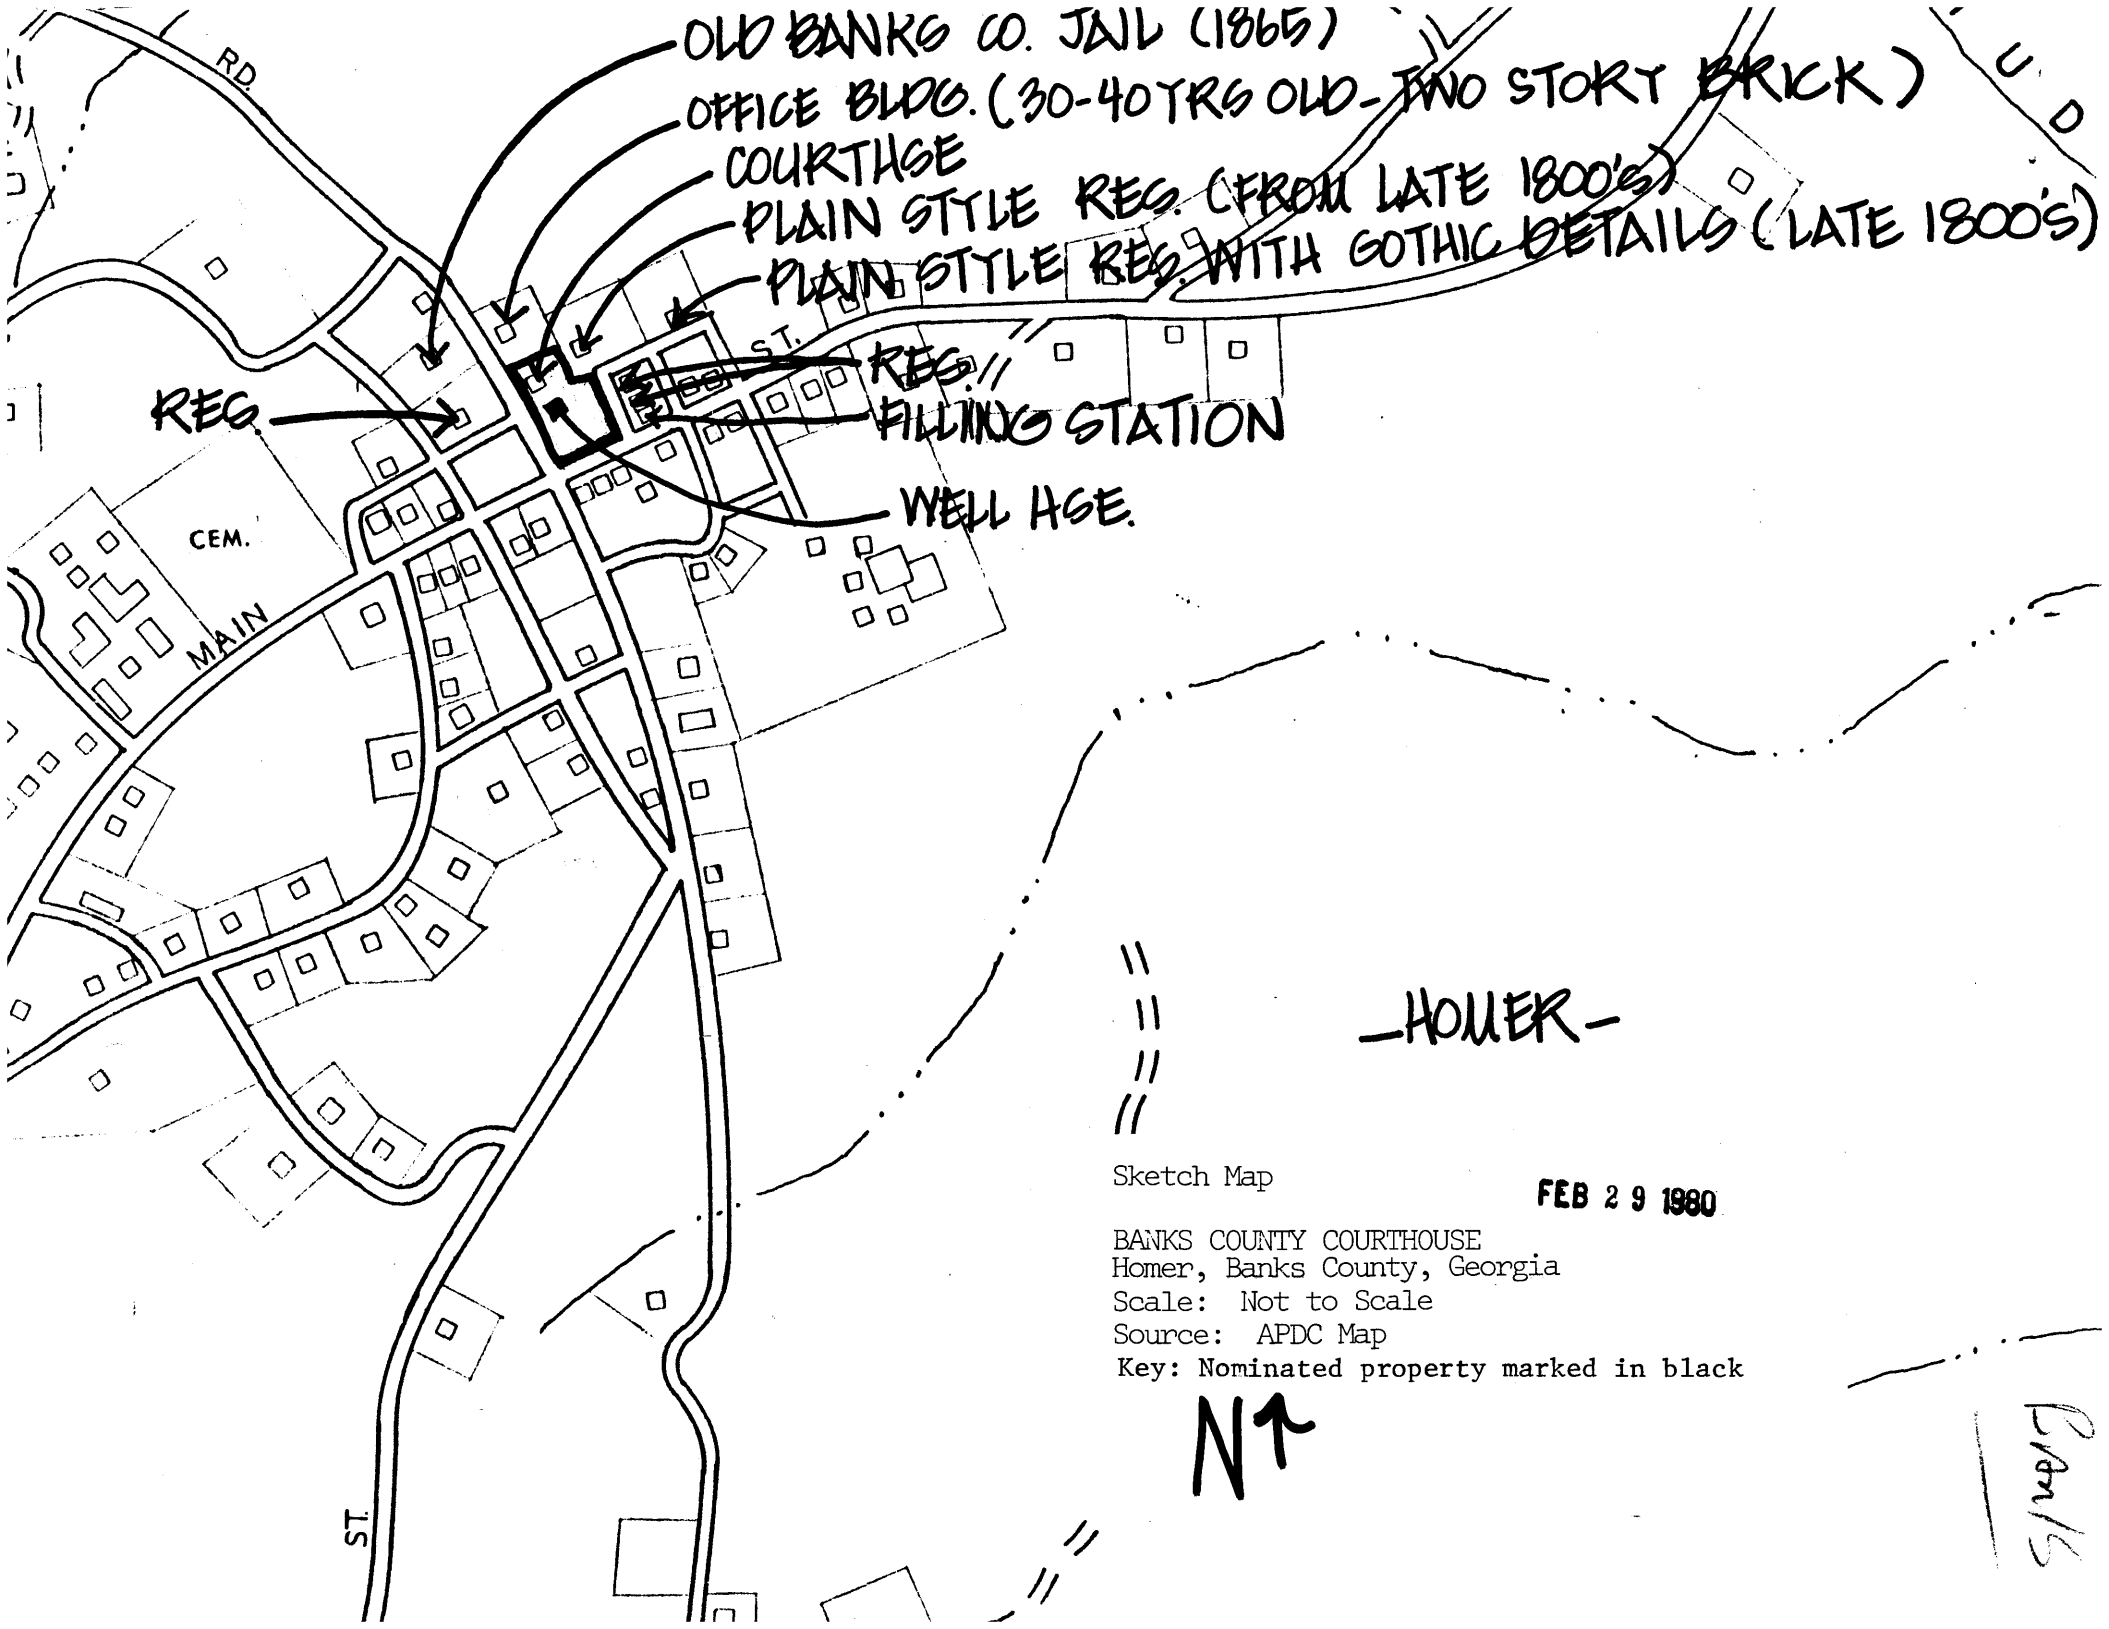 OLD BANKS CO. JAIL (1865)
OFFICE BLDG. (30-40 YRS OLD - TWO STORY BRICK)
COURTHSE
PLAIN STYLE RES. (FROM LATE 1800'S)
PLAIN STYLE RES. WITH GOTHIC DETAILS (LATE 1800'S)
RD.
U D
ST.
RES.
RES.
FILLING STATION
WELL HSE.
CEM.
MAIN
-HOMER-
Sketch Map
FEB 29 1980
BANKS COUNTY COURTHOUSE
Homer, Banks County, Georgia
Scale: Not to Scale
Source: APDC Map
Key: Nominated property marked in black
N
ST.
Banks